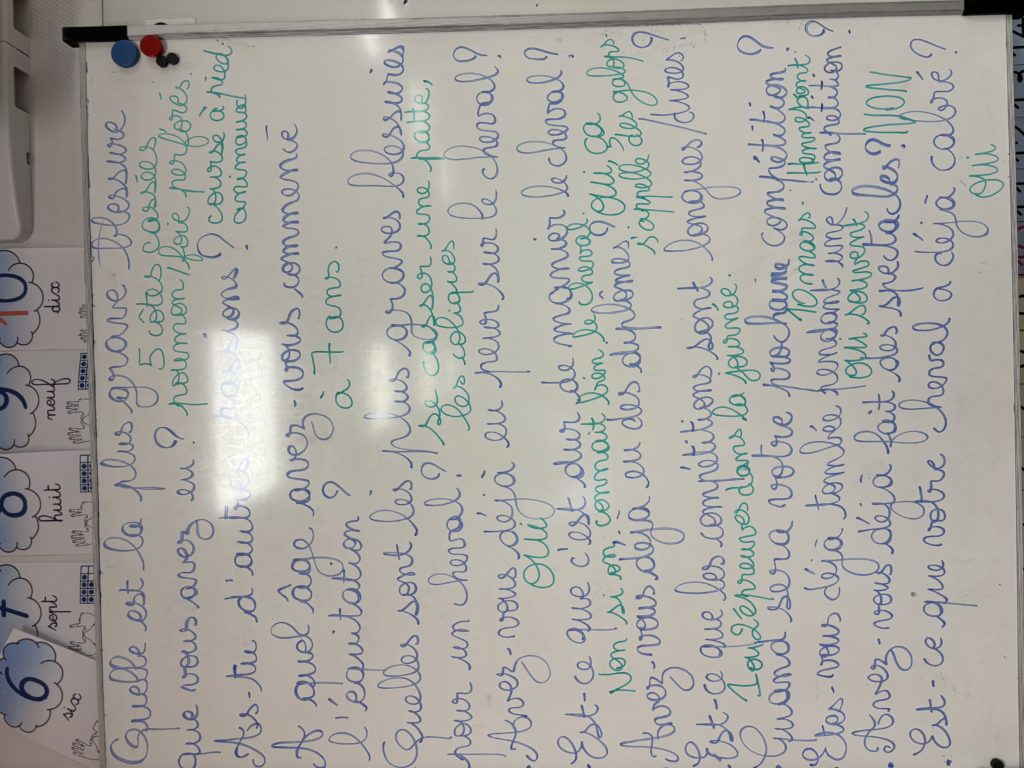 Quelle est la plus grave blessure
que vous avez eu ? 5 côtes cassées
poumon/foie perforés.
As-tu d'autres passions ? course à pied
animaux
A quel âge avez-vous commencé
l'équitation ? à 7 ans.
Quelles sont les plus graves blessures
pour un cheval ? se casser une patte,
les coliques
Avez-vous déjà eu peur sur le cheval ?
OUI
Est-ce que c'est dur de manier le cheval ?
Non si on connait bien le cheval.
Avez-vous déjà eu des diplômes ? OUI, ça
s'appelle des galops.
Est-ce que les compétitions sont longues/dures ?
1 ou 2 épreuves dans la journée.
Quand sera votre prochaine compétition ?
10 mars. Hennepont.
Etes-vous déjà tombée pendant une compétition ?
oui souvent
Avez-vous déjà fait des spectacles ? NON
Est-ce que votre cheval a déjà cabré ?
OUI
6 7 8 9 10
six sept huit neuf dix